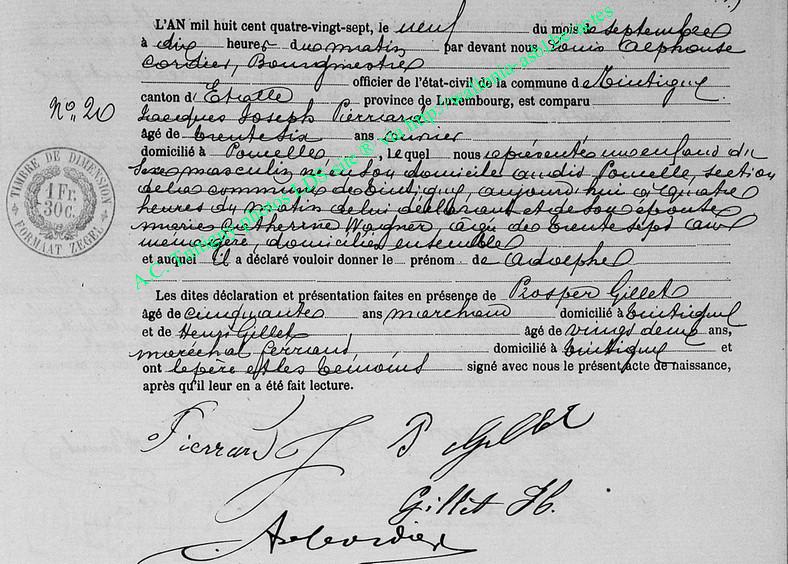 L'AN mil huit cent quatre-vingt-sept, le neuf du mois de septembre
à dix heures du matin par devant nous Louis Alphonse
Cordier, Bourgmestre
officier de l'état-civil de la commune de Tintigny
canton d'Etalle province de Luxembourg, est comparu
N°. 20
Jacques Joseph Pierrard
âgé de trente six ans ouvrier
domicilié à Poncelle, lequel nous a présenté un enfant du
sexe masculin né en son domicile audit Poncelle, section
de la commune de Tintigny, aujourd'hui à quatre
heures du matin de lui déclarant et de son épouse
Marie Catherine Wagner, agée de trente sept ans
ménagère, domiciliés ensemble
et auquel il a déclaré vouloir donner le prénom de Adolphe
Les dites déclaration et présentation faites en présence de Prosper Gillet
âgé de cinquante ans marchand domicilié à Tintigny
et de Henri Gillet âgé de vingt deux ans,
maréchal ferrant domicilié à Tintigny et
ont le père et les témoins signé avec nous le présent acte de naissance,
après qu'il leur en a été fait lecture.
TIMBRE DE DIMENSION
1 Fr.
30 c.
FORMAAT ZEGEL
Pierrard J P Gillet
Gillet H.
A Cordier